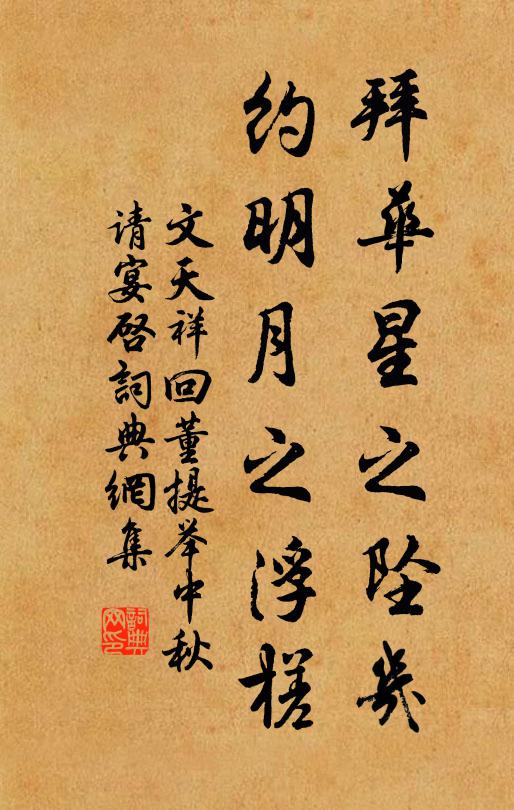 拜華星之坠几
约明月之浮槎
文天祥回董提举中秋
请宴启詞典網集
詞典网印